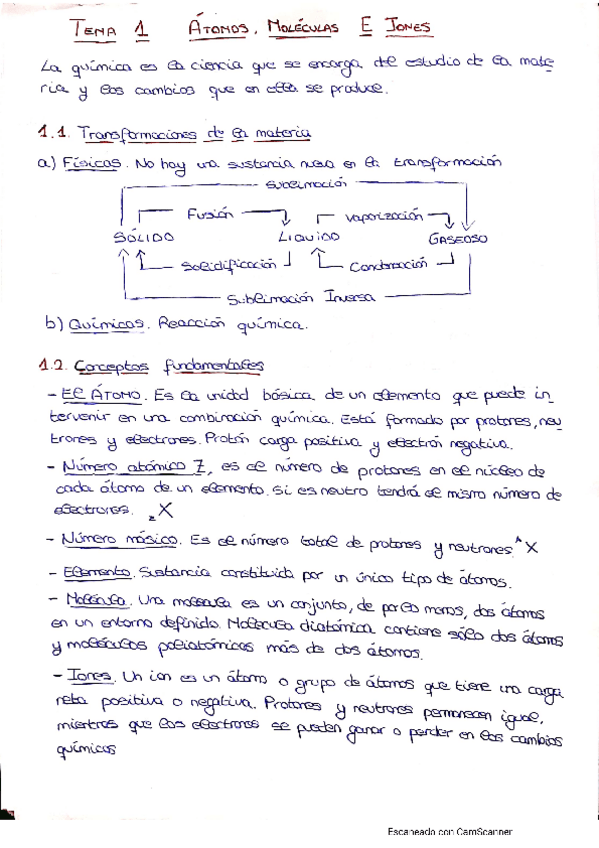 TEMA 1 ÁTOMOS, MOLÉCULAS E IONES
La química es la ciencia que se encarga del estudio de la mate-
ria y los cambios que en ella se produce.
1.1. Transformaciones de la materia
a) Físicas. No hay una sustancia nueva en la transformación
Sublimación
Fusión vaporización
SÓLIDO LIQUIDO GASEOSO
Solidificación Condensación
Sublimación Inversa
b) Químicas. Reacción química.
1.2. Conceptos fundamentales
- El ÁTOMO. Es la unidad básica de un elemento que puede in
tervenir en una combinación química. Está formado por protones, neu
trones y electrones. Protón carga positiva y electrón negativa.
- Número atómico Z, es el número de protones en el núcleo de
cada átomo de un elemento. Si es neutro tendrá el mismo número de
electrones. zX
- Número másico. Es el número total de protones y neutrones. ᴬX
- Elemento. Sustancia constituida por un único tipo de átomos.
- Molécula. Una molecula es un conjunto, de por lo menos, dos átomos
en un entorno definido. Molecula diatómica contiene sólo dos átomos
y moléculas poliatómicas más de dos átomos.
- Iones. Un ion es un átomo o grupo de átomos que tiene una carga
neta positiva o negativa. Protones y neutrones permanecen igual,
mientras que los electrones se pueden ganar o perder en los cambios
químicos
Escaneado con CamScanner